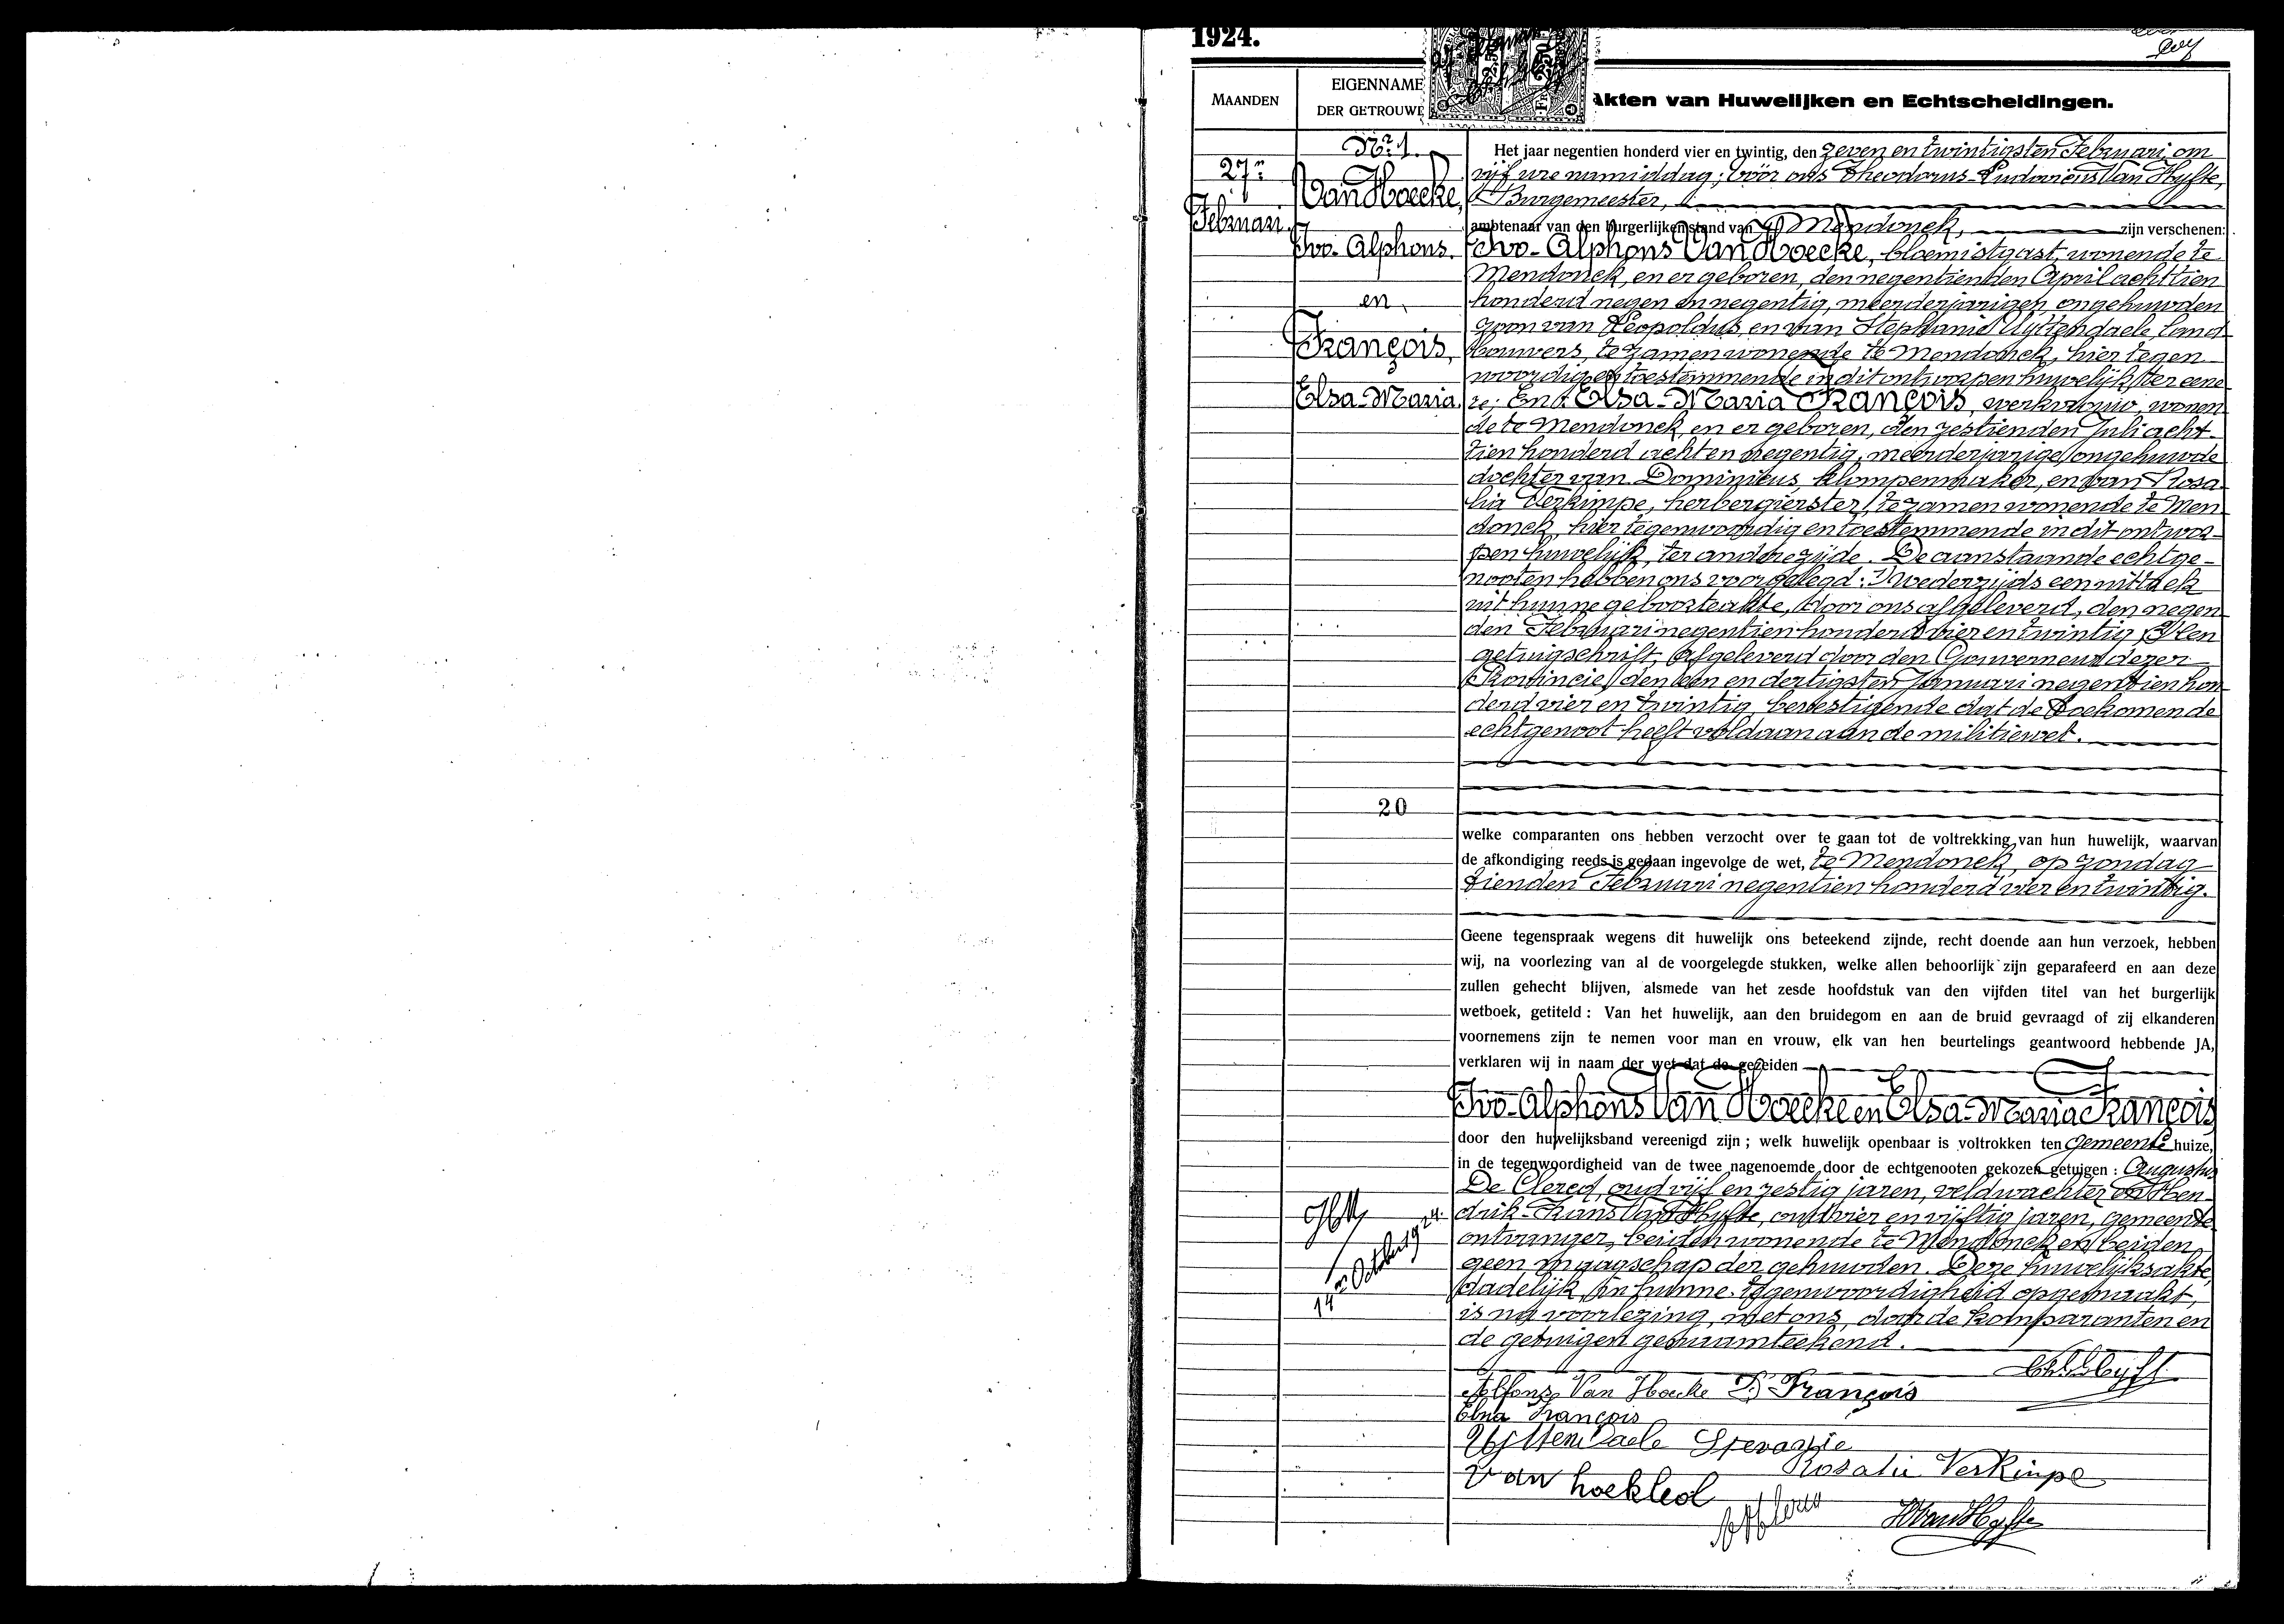 1924.
MAANDEN
EIGENNAME
DER GETROUWE
Akten van Huwelijken en Echtscheidingen.
Nr. 1.
27n
Februari.
Van Hoecke,
Ivo-Alphons.
en
François,
Elsa-Maria.
Het jaar negentien honderd vier en twintig, den zeven en twintigsten Februari, om
vijf ure namiddag; vóór ons Theodorus-Ludovicus Van Hyfte,
Burgemeester,
ambtenaar van den burgerlijken stand van Mendonck, zijn verschenen:
Ivo-Alphons Van Hoecke, bloemistgast, wonende te
Mendonck, en er geboren, den negentienden April achttien
honderd negen en negentig, meerderjarigen, ongehuwden
zoon van Leopoldus, en van Stephanie Uyttendaele, land
bouwers, te zamen wonende te Mendonck, hier tegen
woordig en toestemmende in dit ontworpen huwelijk, ter eene
re; En Elsa-Maria François, werkvrouw, wonen
de te Mendonck, en er geboren, den zestienden Juli acht-
tien honderd acht en negentig, meerderjarige, ongehuwde
dochter van Dominicus, klompenmaker, en van Rosa
lia Verkimpe, herbergierster, te zamen wonende te Men
donck, hier tegenwoordig en toestemmende in dit ontwor-
pen huwelijk, ter andere zijde. De aanstaande echtge-
nooten hebben ons voorgelegd: 1) wederzijds een uittrek
uit hunne geboorteakte, door ons afgeleverd, den negen
den Februari negentien honderd vier en twintig, 2) en
getuigschrift, afgeleverd door den Gouverneur dezer
Provincie, den een en dertigsten Januari negentien hon
derd vier en twintig, bevestigende dat de toekomende
echtgenoot heeft voldaan aan de militiewet.
20
welke comparanten ons hebben verzocht over te gaan tot de voltrekking van hun huwelijk, waarvan
de afkondiging reeds is gedaan ingevolge de wet, te Mendonck, op zondag
tienden Februari negentien honderd vier en twintig.
Geene tegenspraak wegens dit huwelijk ons beteekend zijnde, recht doende aan hun verzoek, hebben
wij, na voorlezing van al de voorgelegde stukken, welke allen behoorlijk zijn geparafeerd en aan deze
zullen gehecht blijven, alsmede van het zesde hoofdstuk van den vijfden titel van het burgerlijk
wetboek, getiteld : Van het huwelijk, aan den bruidegom en aan de bruid gevraagd of zij elkanderen
voornemens zijn te nemen voor man en vrouw, elk van hen beurtelings geantwoord hebbende JA,
verklaren wij in naam der wet dat de gezeiden
Ivo-Alphons Van Hoecke en Elsa-Maria François
door den huwelijksband vereenigd zijn ; welk huwelijk openbaar is voltrokken ten gemeente huize,
in de tegenwoordigheid van de twee nagenoemde door de echtgenooten gekozen getuigen : Augustus
De Clercq, oud vijf en zestig jaren, veldwachter en Hen-
drik-Frans Van Hyfte, oud vier en vijftig jaren, gemeente
ontvanger, beiden wonende te Mendonck en beiden
geen maagschap der gehuwden. Deze huwelijksakte,
dadelijk, in hunne tegenwoordigheid opgemaakt,
is na voorlezing, met ons, door de komparanten en
de getuigen genaamteekend.
14n October 1924.
Alfons Van Hoecke D. François
Elsa François
Uyttendaele Stevanie
Rosalie Verkinpe
Van hoekleol
HVanHyfte